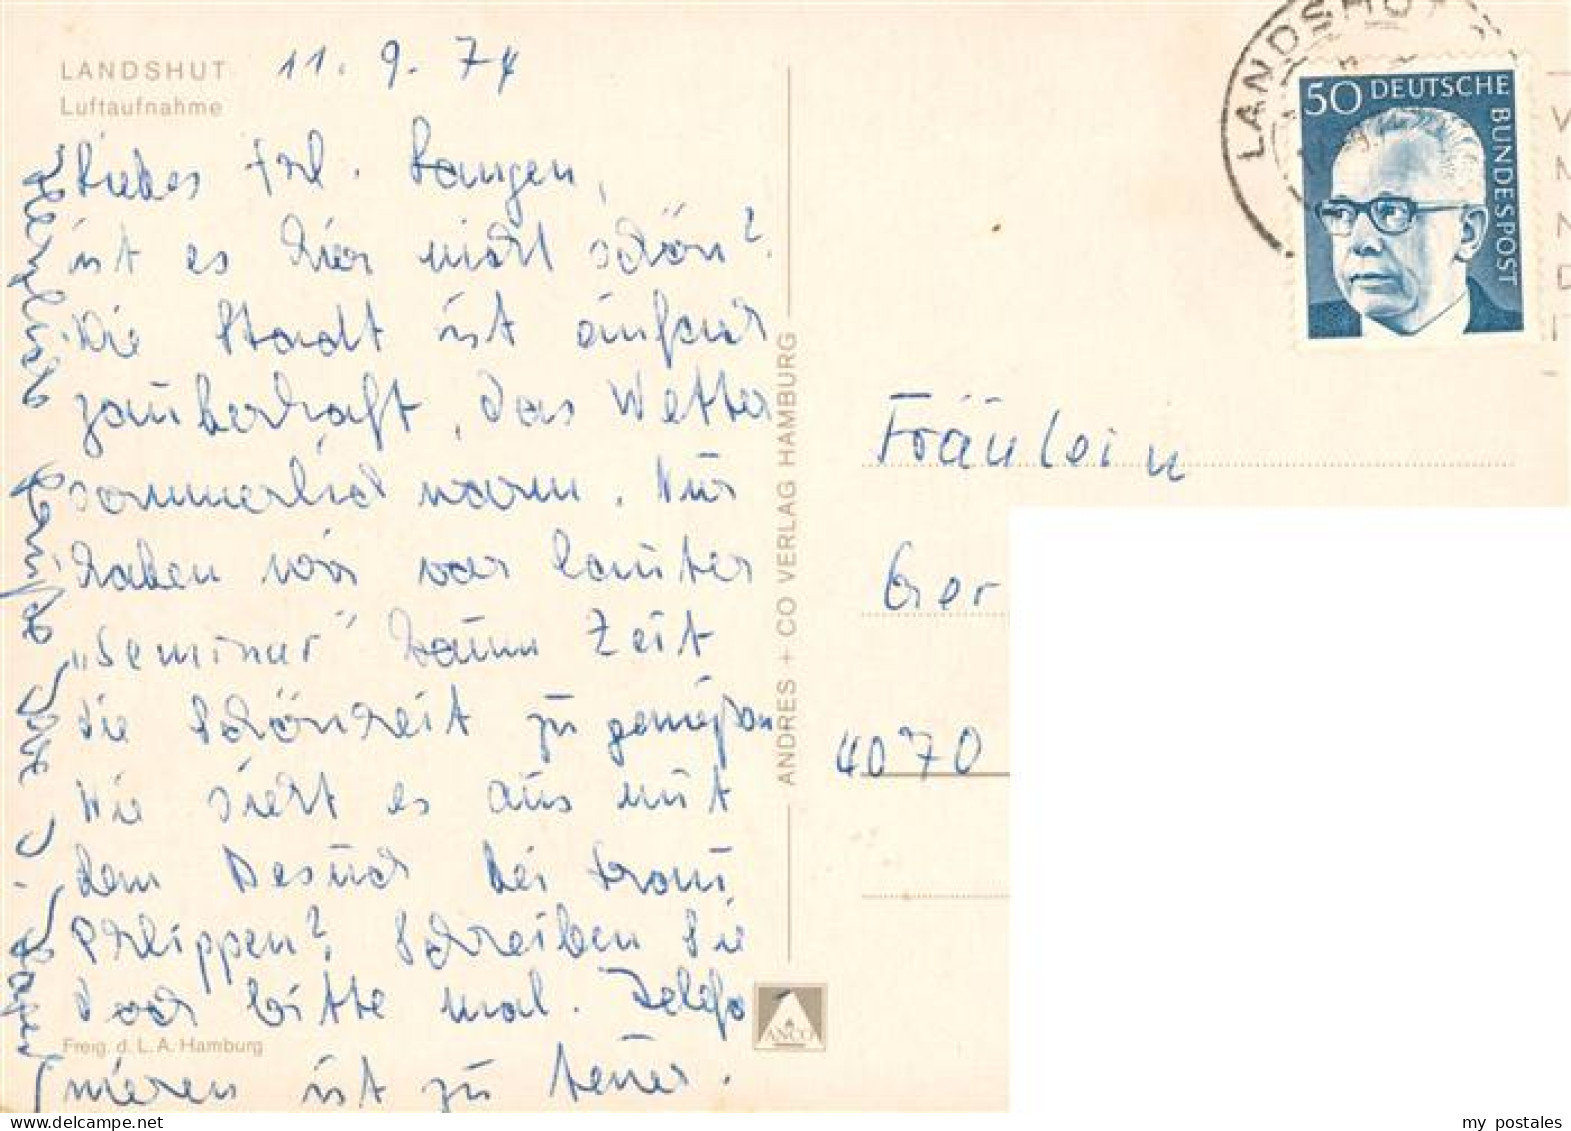 LANDSHUT
Luftaufnahme
11. 9. 74
Liebes Frl. Langen,
ist es hier nicht schön?
Die Stadt ist einfach
zauberhaft, das Wetter
sommerlich warm. Nur
haben wir vor lauter
„Seminar" kaum Zeit
die Schönheit zu genießen
Wie sieht es aus mit
dem Besuch bei Frau
Philippen? Schreiben Sie
doch bitte mal. Telefo
nieren ist zu teuer.
Herzlichst
Freig. d. L. A. Hamburg
ANDRES + CO VERLAG HAMBURG
ANCO
LANDSHUT
50 DEUTSCHE
BUNDESPOST
Fräulein
Ger
4070
my postales